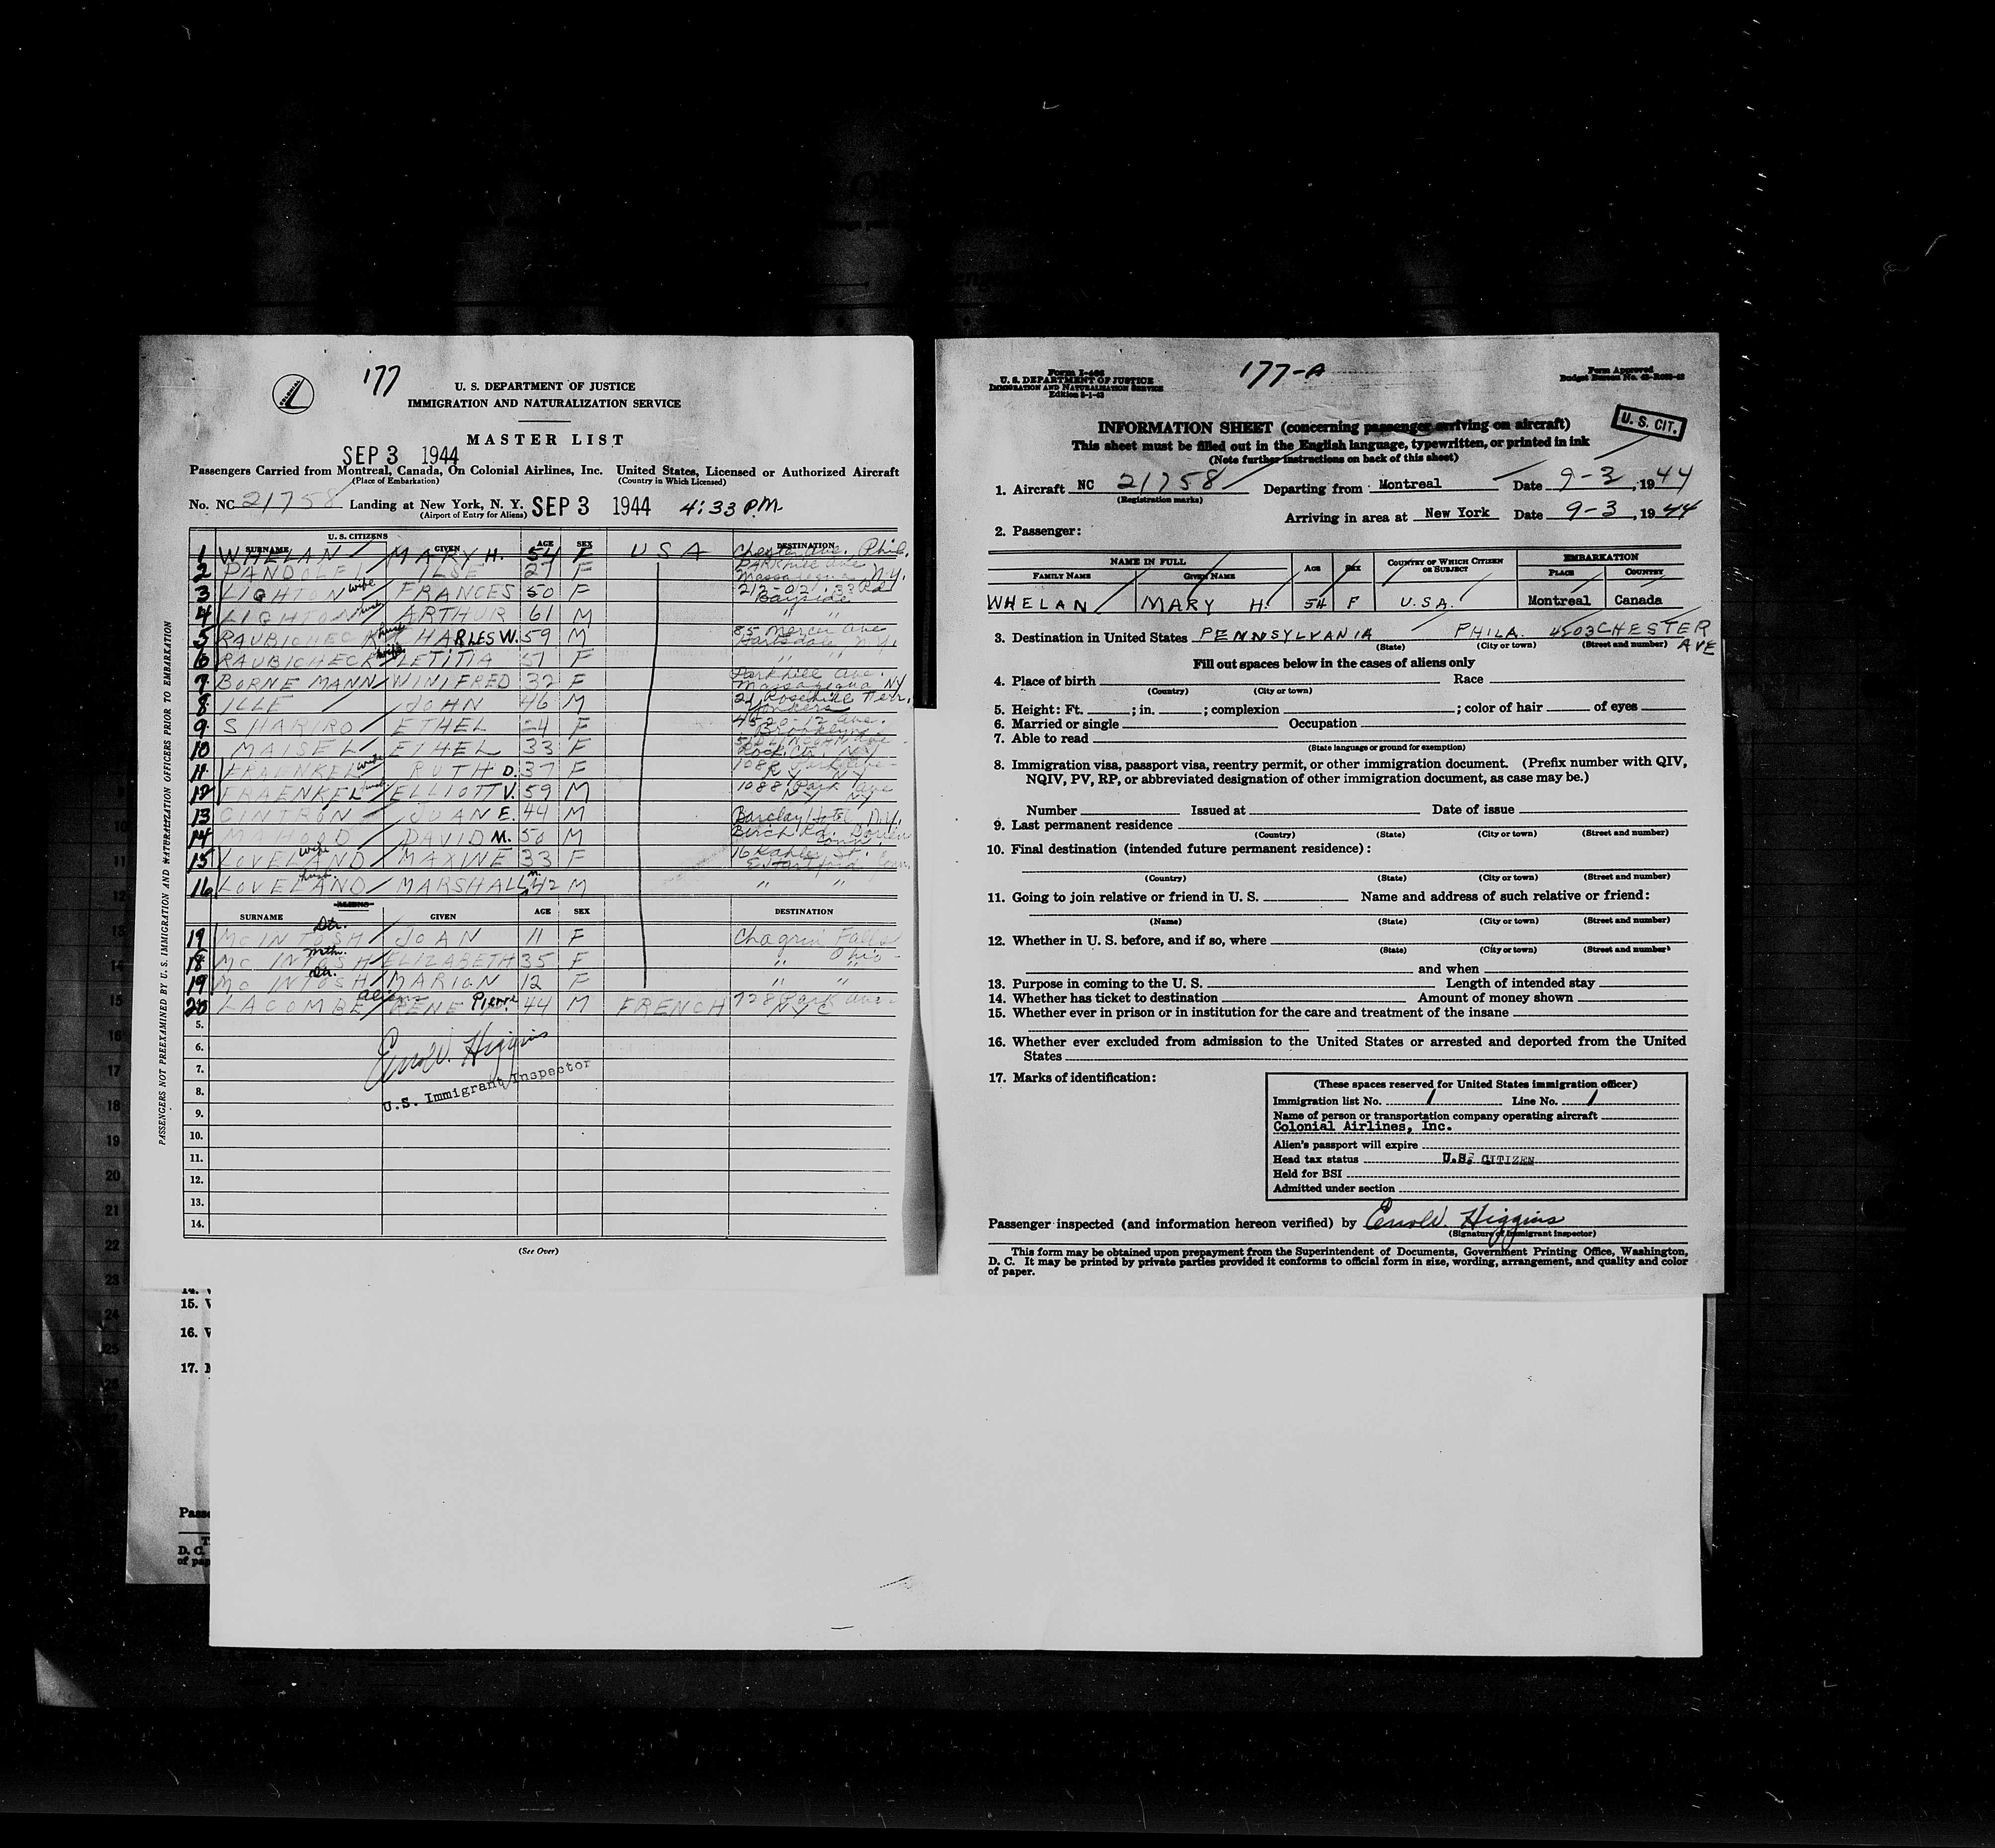 177
COLONIAL
U. S. DEPARTMENT OF JUSTICE
IMMIGRATION AND NATURALIZATION SERVICE
MASTER LIST
SEP 3 1944
Passengers Carried from Montreal, Canada, On Colonial Airlines, Inc. United States, Licensed or Authorized Aircraft
(Place of Embarkation) (Country in Which Licensed)
No. NC 21758 Landing at New York, N. Y. SEP 3 1944 4:33 P.M.
(Airport of Entry for Aliens)
U. S. CITIZENS
SURNAME GIVEN AGE SEX DESTINATION
1 WHELAN MARY H. 54 F U S A Chester Ave. Phil.
2 PANDOLFI ILSE 27 F Parkhill Ave Massapequa N.Y.
3 LIGHTON wife FRANCES 50 F 212-02 33 Rd Bayside
4 LIGHTON ARTHUR 61 M " "
5 RAUBICHECK CHARLES W. 59 M 85 Mercer Ave Hartsdale, N.Y.
6 RAUBICHECK wife LETITIA 51 F " "
7 BORNE MANN WINIFRED 32 F Parkhill Ave. Massapequa NY
8 ILLE JOHN 46 M 21 Rosehill Terr. Yonkers
9 SHARIRO ETHEL 24 F 4520-12 Ave. Brooklyn
10 MAISEL ETHEL 33 F
11 FRAENKEL wife RUTH D. 37 F 1088 Park Ave N Y NY
12 FRAENKEL ELLIOTT V. 59 M 1088 Park Ave NY NY
13 CINTRON JUAN E. 44 M Barclay Hotel N.Y.
14 MAHOOD DAVID M. 50 M Birch Rd. Darien Conn.
15 LOVELAND wife MAXINE 33 F 16 Kahler St. E. Hartford Conn.
16 LOVELAND husb. MARSHALL M. 42 M " "
ALIENS
SURNAME GIVEN AGE SEX DESTINATION
17 MC INTOSH Dtr. JOAN 11 F Chagrin Falls
18 MC INTOSH mth. ELIZABETH 35 F " Ohio
19 MC INTOSH Dtr. MARION 12 F " "
20 LACOMBE aliens RENE Pierre 44 M FRENCH 728 Park Ave NYC
5.
6.
7.
8.
9.
10.
11.
12.
13.
14.
Errol W. Higgins
U.S. Immigrant Inspector
(See Over)
PASSENGERS NOT PREEXAMINED BY U. S. IMMIGRATION AND NATURALIZATION OFFICERS PRIOR TO EMBARKATION
15. V
16. V
17.
Passe
D. C.
of pap
177-A
Form I-466
U. S. DEPARTMENT OF JUSTICE
IMMIGRATION AND NATURALIZATION SERVICE
Edition 8-1-43
Form Approved
U. S. CIT.
INFORMATION SHEET (concerning passenger arriving on aircraft)
This sheet must be filled out in the English language, typewritten, or printed in ink
(Note further instructions on back of this sheet)
1. Aircraft NC 21758 Departing from Montreal Date 9-3, 1944
(Registration marks)
Arriving in area at New York Date 9-3, 1944
2. Passenger:
NAME IN FULL AGE SEX COUNTRY OF WHICH CITIZEN OR SUBJECT EMBARKATION
FAMILY NAME GIVEN NAME PLACE COUNTRY
WHELAN MARY H. 54 F U.S.A. Montreal Canada
3. Destination in United States PENNSYLVANIA PHILA. 4503 CHESTER AVE
(State) (City or town) (Street and number)
Fill out spaces below in the cases of aliens only
4. Place of birth Race
(Country) (City or town)
5. Height: Ft. ; in. ; complexion ; color of hair of eyes
6. Married or single Occupation
7. Able to read
(State language or ground for exemption)
8. Immigration visa, passport visa, reentry permit, or other immigration document. (Prefix number with QIV,
NQIV, PV, RP, or abbreviated designation of other immigration document, as case may be.)
Number Issued at Date of issue
9. Last permanent residence
(Country) (State) (City or town) (Street and number)
10. Final destination (intended future permanent residence):
(Country) (State) (City or town) (Street and number)
11. Going to join relative or friend in U. S. Name and address of such relative or friend:
(Name) (State) (City or town) (Street and number)
12. Whether in U. S. before, and if so, where
(State) (City or town) (Street and number)
and when
13. Purpose in coming to the U. S. Length of intended stay
14. Whether has ticket to destination Amount of money shown
15. Whether ever in prison or in institution for the care and treatment of the insane
16. Whether ever excluded from admission to the United States or arrested and deported from the United
States
17. Marks of identification:
(These spaces reserved for United States immigration officer)
Immigration list No. 1 Line No. 1
Name of person or transportation company operating aircraft
Colonial Airlines, Inc.
Alien's passport will expire
Head tax status U.S. CITIZEN
Held for BSI
Admitted under section
Passenger inspected (and information hereon verified) by Errol W. Higgins
(Signature of Immigrant Inspector)
This form may be obtained upon prepayment from the Superintendent of Documents, Government Printing Office, Washington,
D. C. It may be printed by private parties provided it conforms to official form in size, wording, arrangement, and quality and color
of paper.